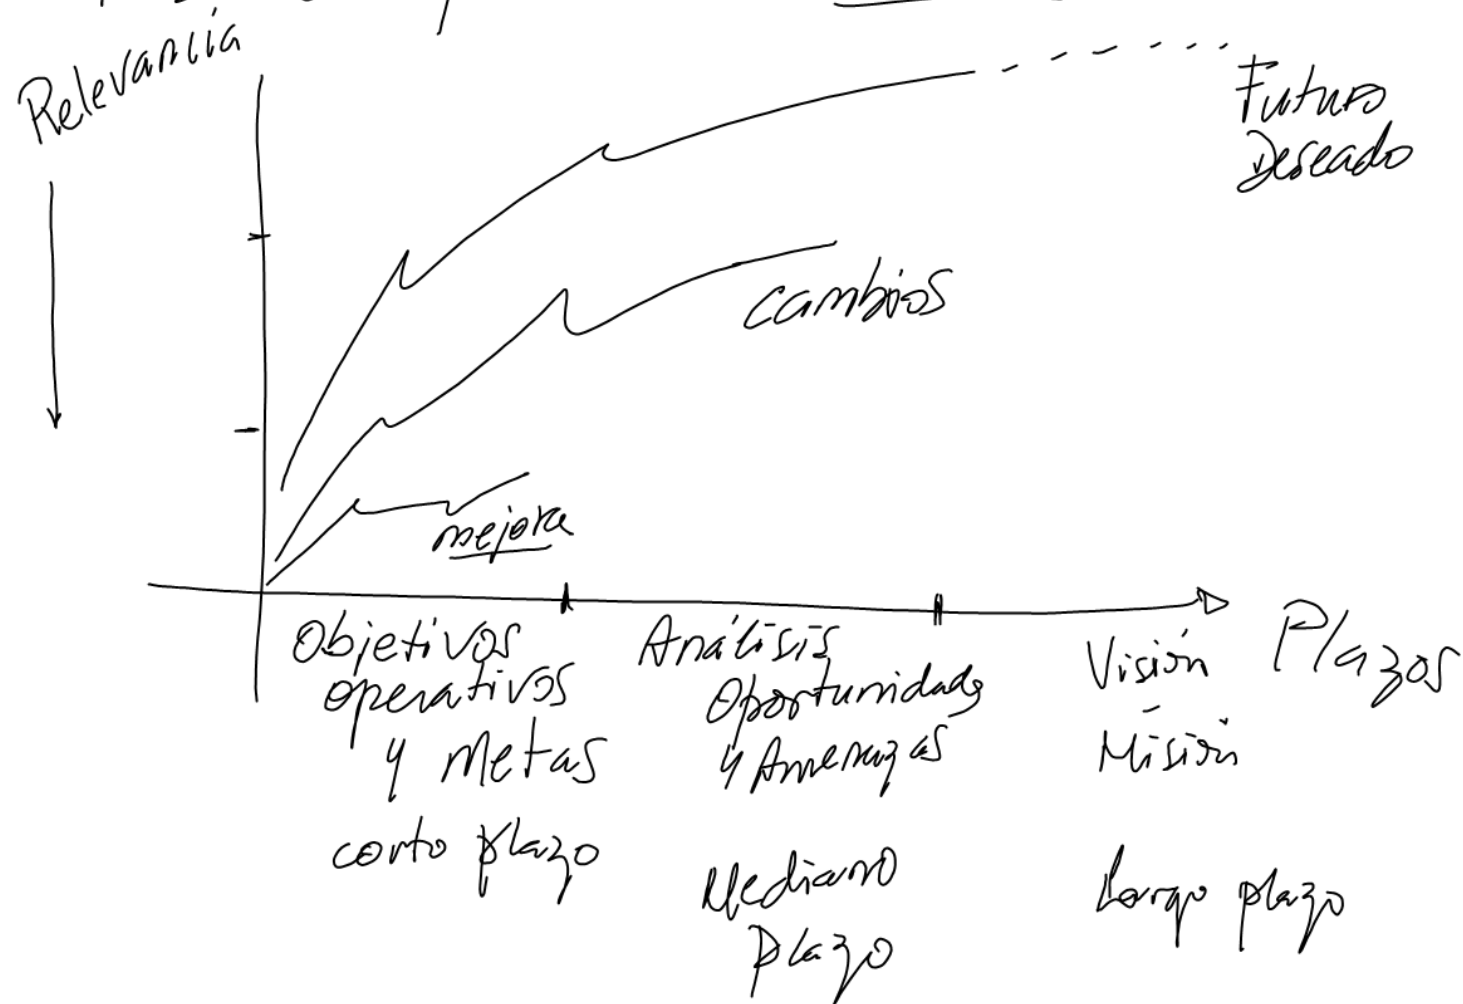 Relevancia
Futuro
Deseado
cambios
mejora
Objetivos
operativos
y metas
corto plazo
Análisis
Oportunidades
y Amenazas
Mediano
plazo
Visión
-
Misión
Largo plazo
Plazos